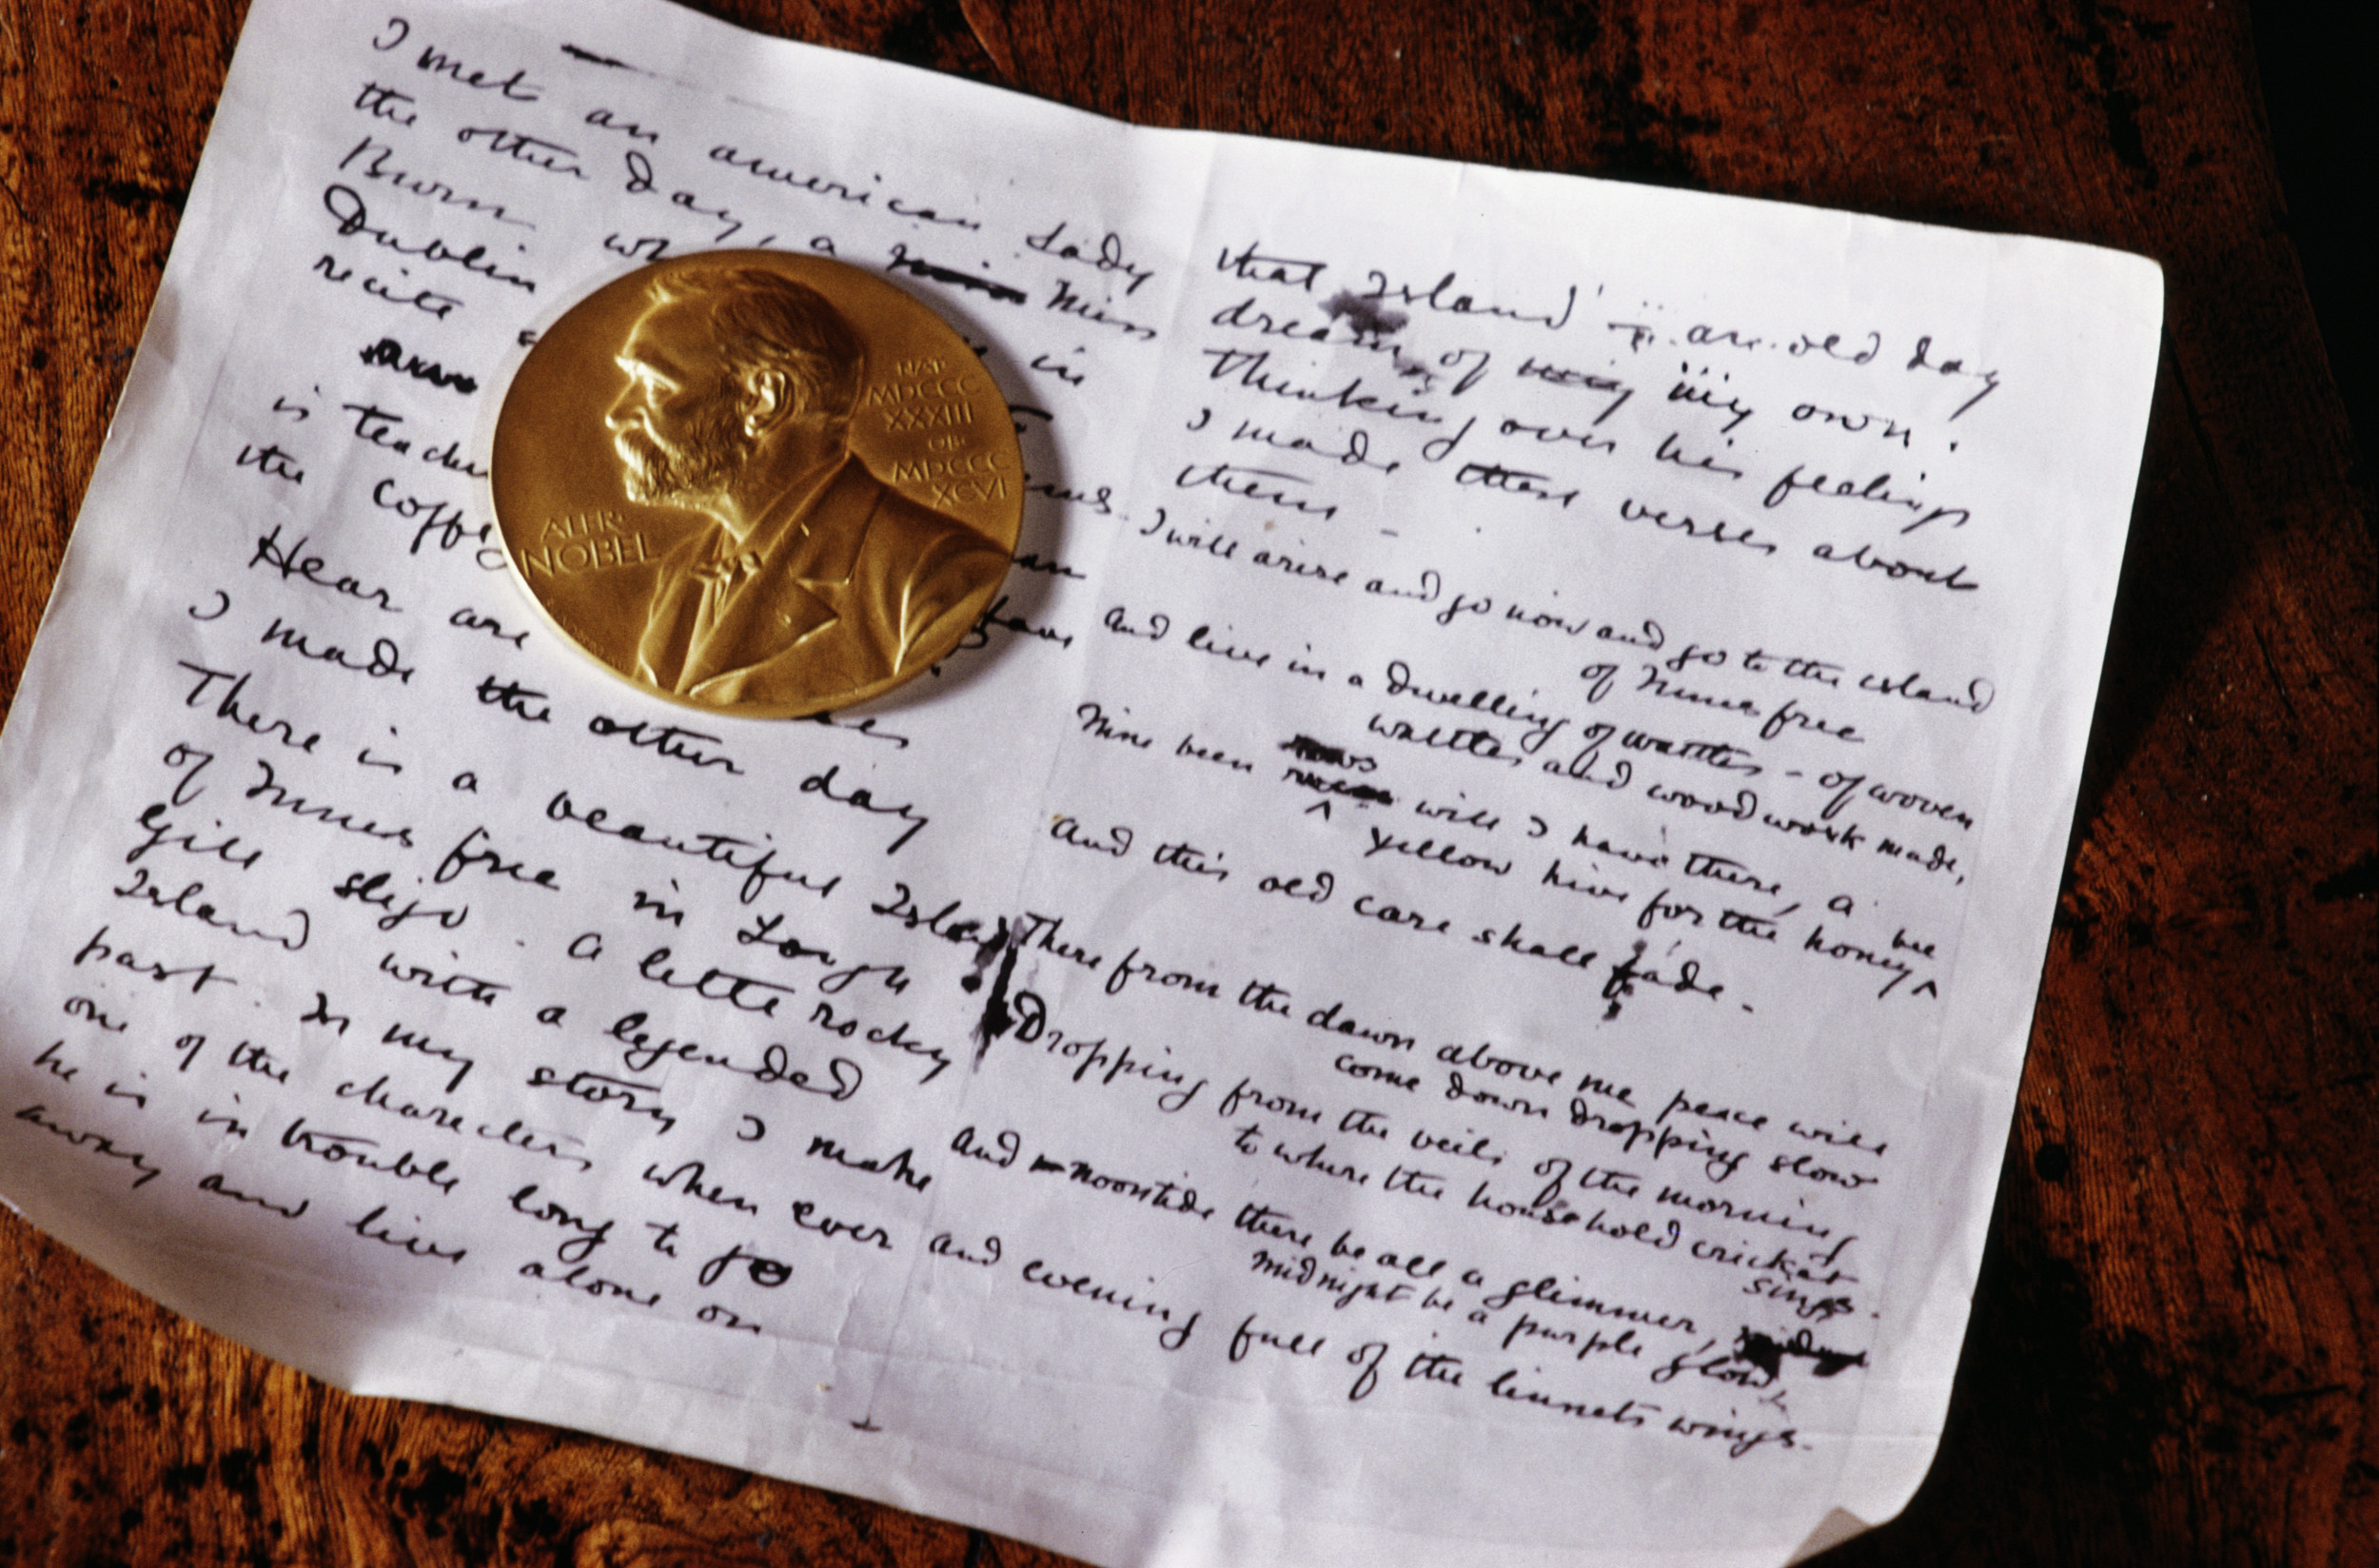 I met an american Lady
the other day, a Miss
Burn wh in
Dublin
recite
is teache
the coffe
Hear are
I made the other day
There is a beautiful Island
of Innis free in Lough
Gill Sligo. A little rocky
Island with a legended
past. In my story I make
one of the charecters when ever
he is in trouble long to go
away and live alone on
ALFR·
NOBEL
NAT·
MDCCC
XXXIII
OB·
MDCCC
XCVI
that Island – an old day
dream of my my own.
Thinking over his feelings
I made these verses about
them –
I will arise and go now and go to the island
of Innis free
And live in a dwelling of wattles – of woven
wattles and wood work made,
Nine been rows will I have there, a
yellow hive for the honey bee
And this old care shall fade.
There from the dawn above me peace will
come down dropping slow
Dropping from the veils of the morning
to where the household cricket
sings.
And noontide there be all a glimmer,
midnight be a purple glow,
And evening full of the linnets wings.